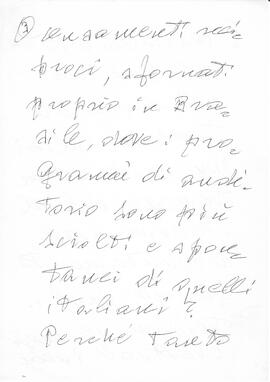 3 ensamenti reci-
proci, sfornati
proprio in Bra-
sile, dove i pro-
grammi di audi-
torio sono più
sciolti e spon-
tanei di quelli
italiani?
Perché tanto